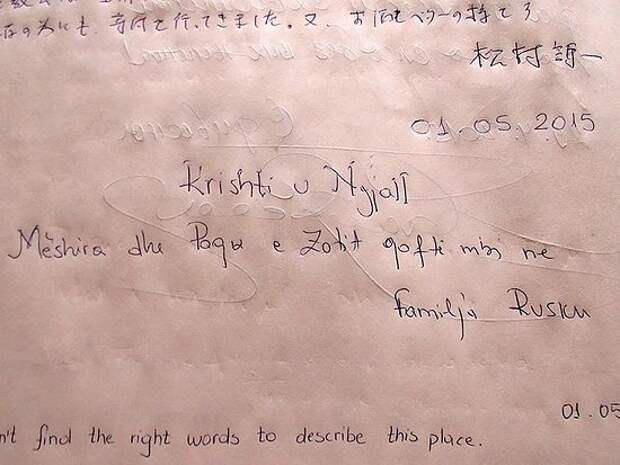 存の為にも、寄付を行ってきました。又、
松村
01.05.2015
Krishti u Ngjall
Mëshira dhe Paqa e Zotit qoftë mbi ne
Familja Rusku
01.05
n't find the right words to describe this place.